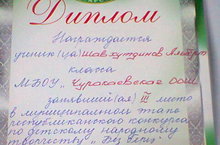 Диплом
Награждается
ученик (ца) Шавхутдинов Альберт
класса
МБОУ „Чуракаевская СОШ
занявший(ая) III место
в муниципальном этапе
республиканского конкурса
по детскому народному
творчеству